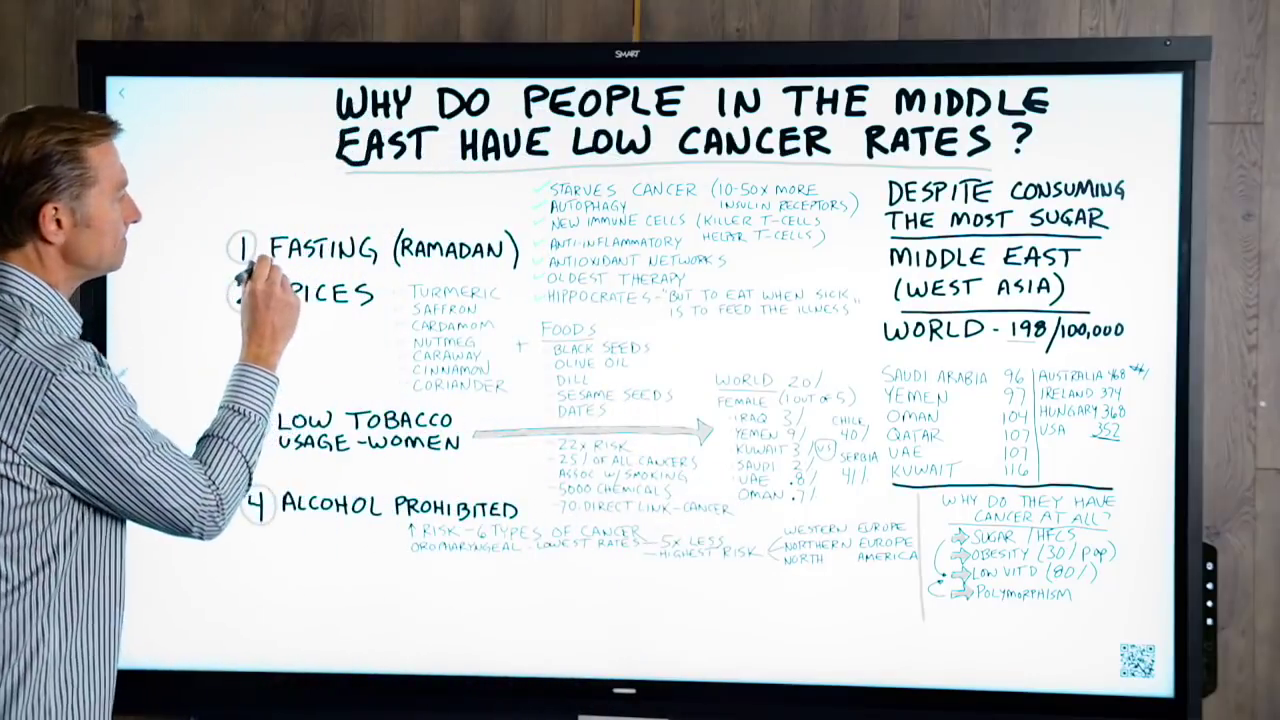 SMART
WHY DO PEOPLE IN THE MIDDLE
EAST HAVE LOW CANCER RATES?
1 FASTING (RAMADAN)
STARVES CANCER (10-50X MORE
INSULIN RECEPTORS)
AUTOPHAGY
NEW IMMUNE CELLS (KILLER T-CELLS
HELPER T-CELLS)
ANTI-INFLAMMATORY
ANTIOXIDANT NETWORKS
OLDEST THERAPY
HIPPOCRATES-"BUT TO EAT WHEN SICK,
IS TO FEED THE ILLNESS
PICES
TURMERIC
SAFFRON
CARDAMOM
NUTMEG
CARAWAY
CINNAMON
CORIANDER
+
FOODS
BLACK SEEDS
OLIVE OIL
DILL
SESAME SEEDS
DATES
LOW TOBACCO
USAGE-WOMEN
-22X RISK
-25/ OF ALL CANCERS
ASSOC W/ SMOKING
-5000 CHEMICALS
-70-DIRECT LINK-CANCER
WORLD 20/
FEMALE (1 OUT OF 5)
-IRAQ 3/
YEMEN 9/
KUWAIT 3/
-SAUDI 2/
-UAE .8/
OMAN .7/
VS
CHILE
40/
SERBIA
41/
4 ALCOHOL PROHIBITED
↑ RISK-6 TYPES OF CANCER
OROPHARYNGEAL-LOWEST RATES-5X LESS
-HIGHEST RISK
WESTERN EUROPE
NORTHERN EUROPE
NORTH AMERICA
DESPITE CONSUMING
THE MOST SUGAR
MIDDLE EAST
(WEST ASIA)
WORLD - 198/100,000
SAUDI ARABIA 96
YEMEN 97
OMAN 104
QATAR 107
UAE 107
KUWAIT 116
AUSTRALIA 468
IRELAND 374
HUNGARY 368
USA 352
WHY DO THEY HAVE
CANCER AT ALL?
SUGAR/HFCS
OBESITY (30/ pop)
LOW VIT D (80/)
POLYMORPHISM